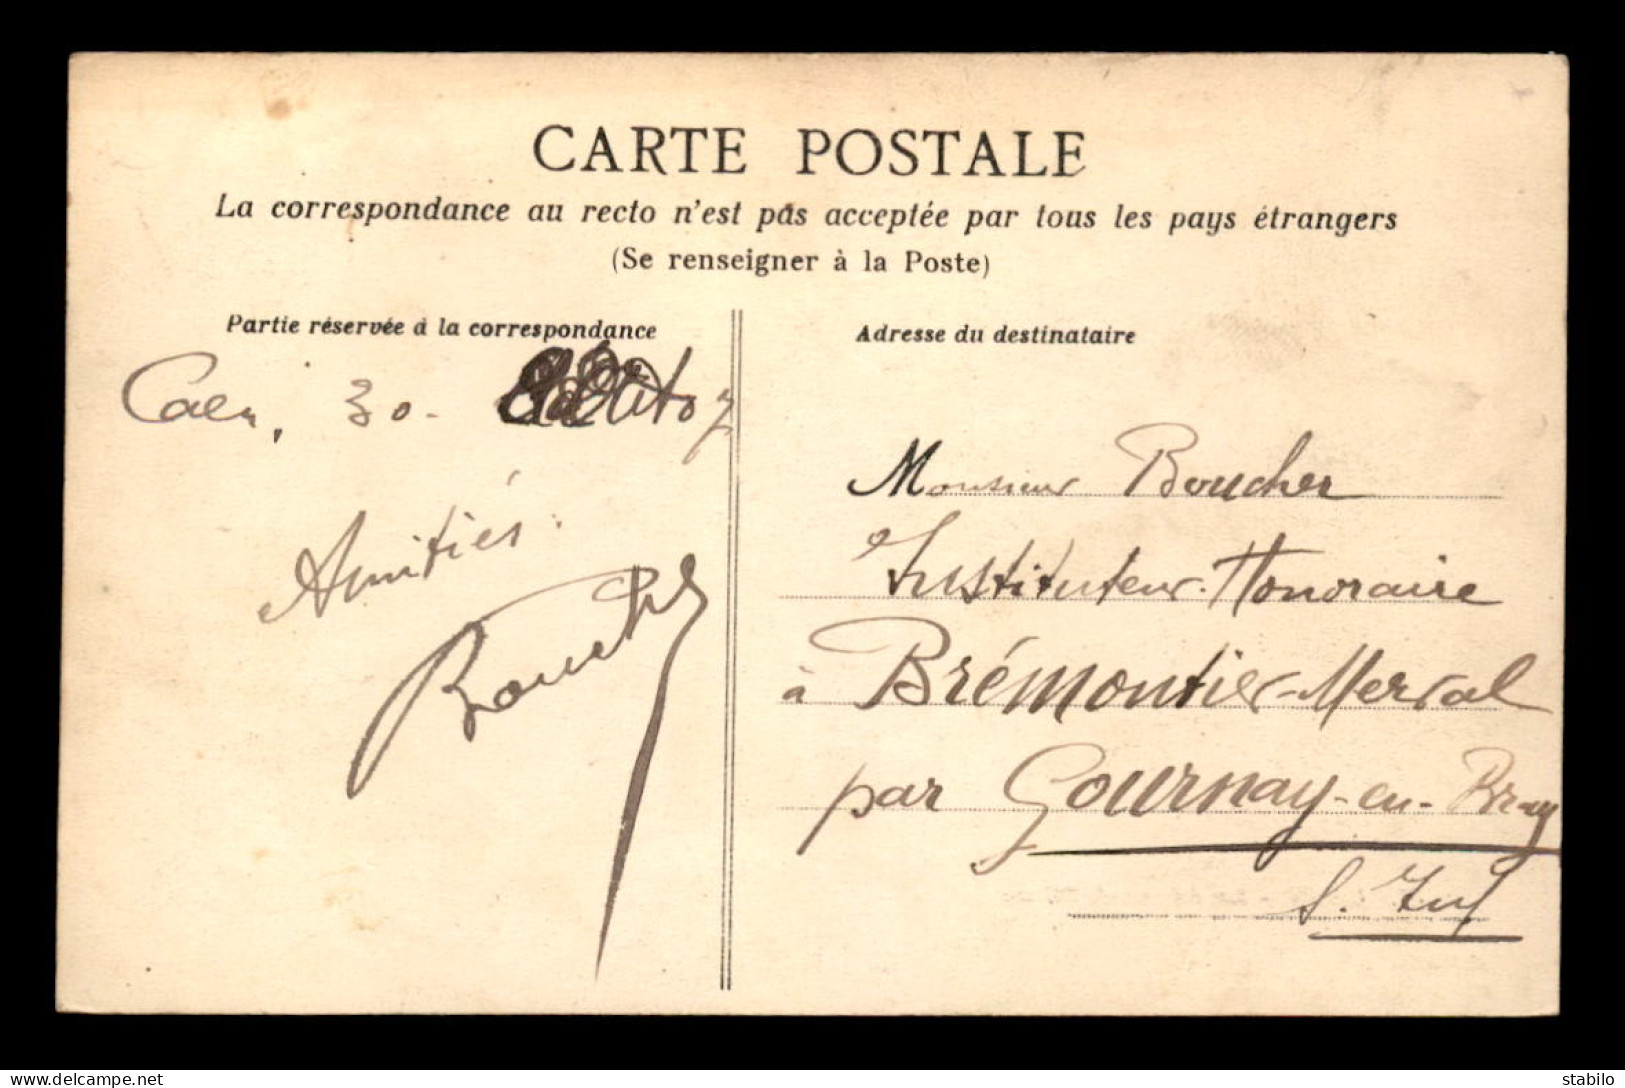 CARTE POSTALE
La correspondance au recto n'est pas acceptée par tous les pays étrangers
(Se renseigner à la Poste)
Partie réservée à la correspondance
Caen, 30.
Amitiés.
Boucher
Adresse du destinataire
Monsieur Boucher
Instituteur Honoraire
à Brémontier-Merval
par Gournay-en-Bray
S. Inf
www.delcampe.net
stabilo